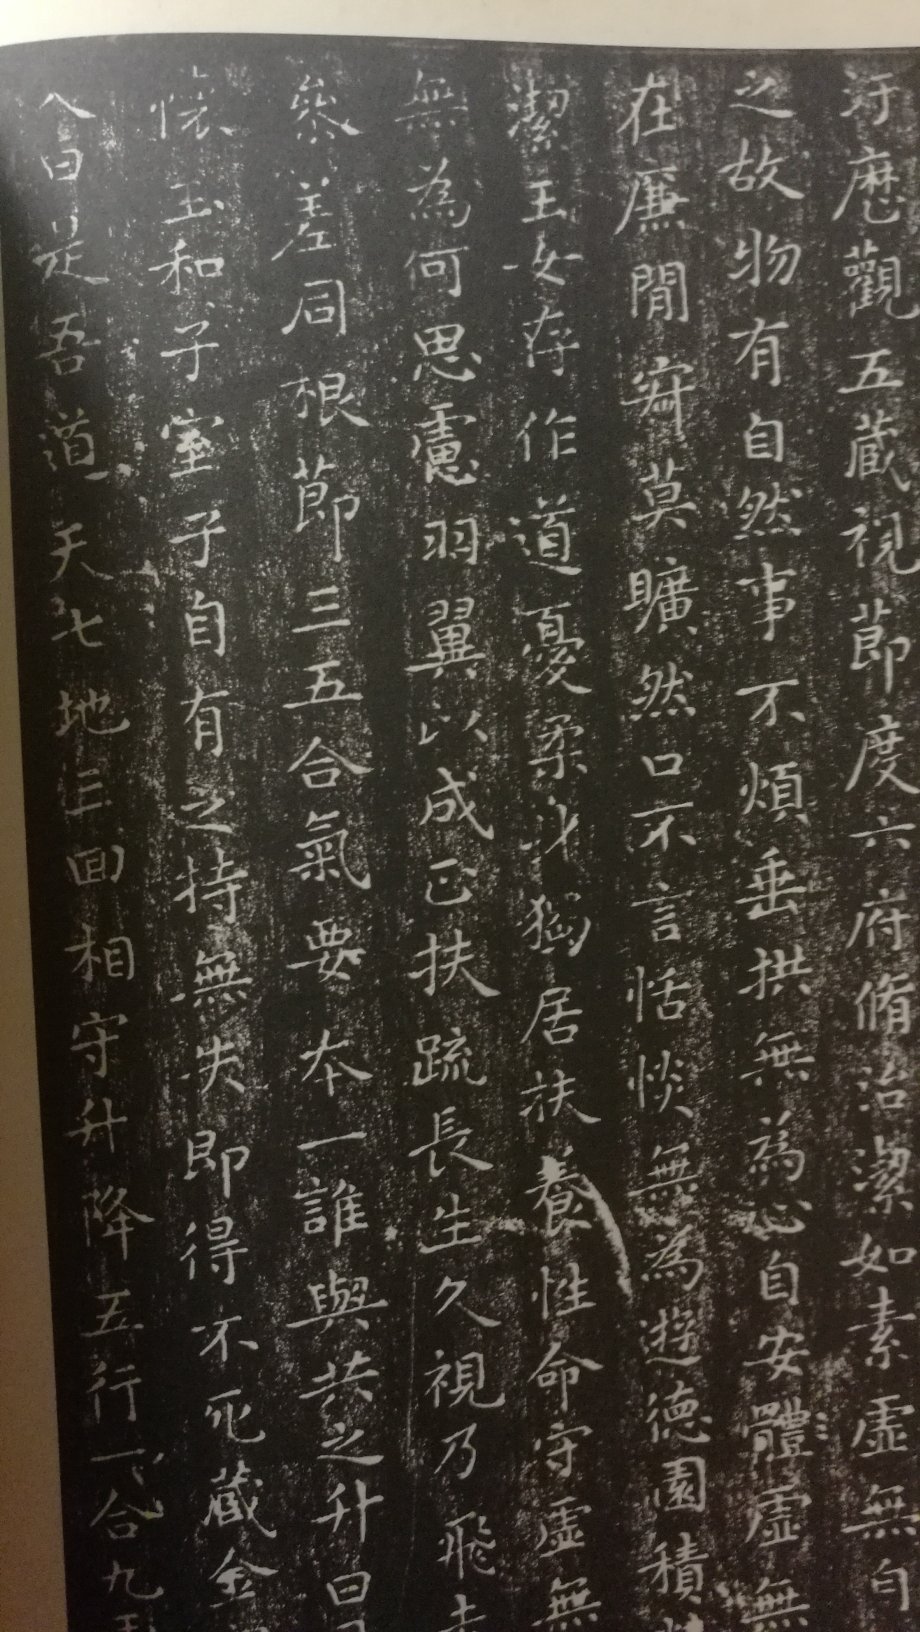 汙歷觀五藏視節度六府脩治潔如素虛無自
之故物有自然事不煩垂拱無為心自安體虛無
在廉閒寂莫曠然口不言恬惔無為遊德園積
潔玉女存作道憂柔身獨居扶養性命守虛無
無為何思慮羽翼以成正扶疏長生久視乃飛
參差同根節三五合氣要本一誰與共之升日
懷玉和子室子自有之持無失即得不死藏金
入日是吾道天七地三回相守升降五行一合九